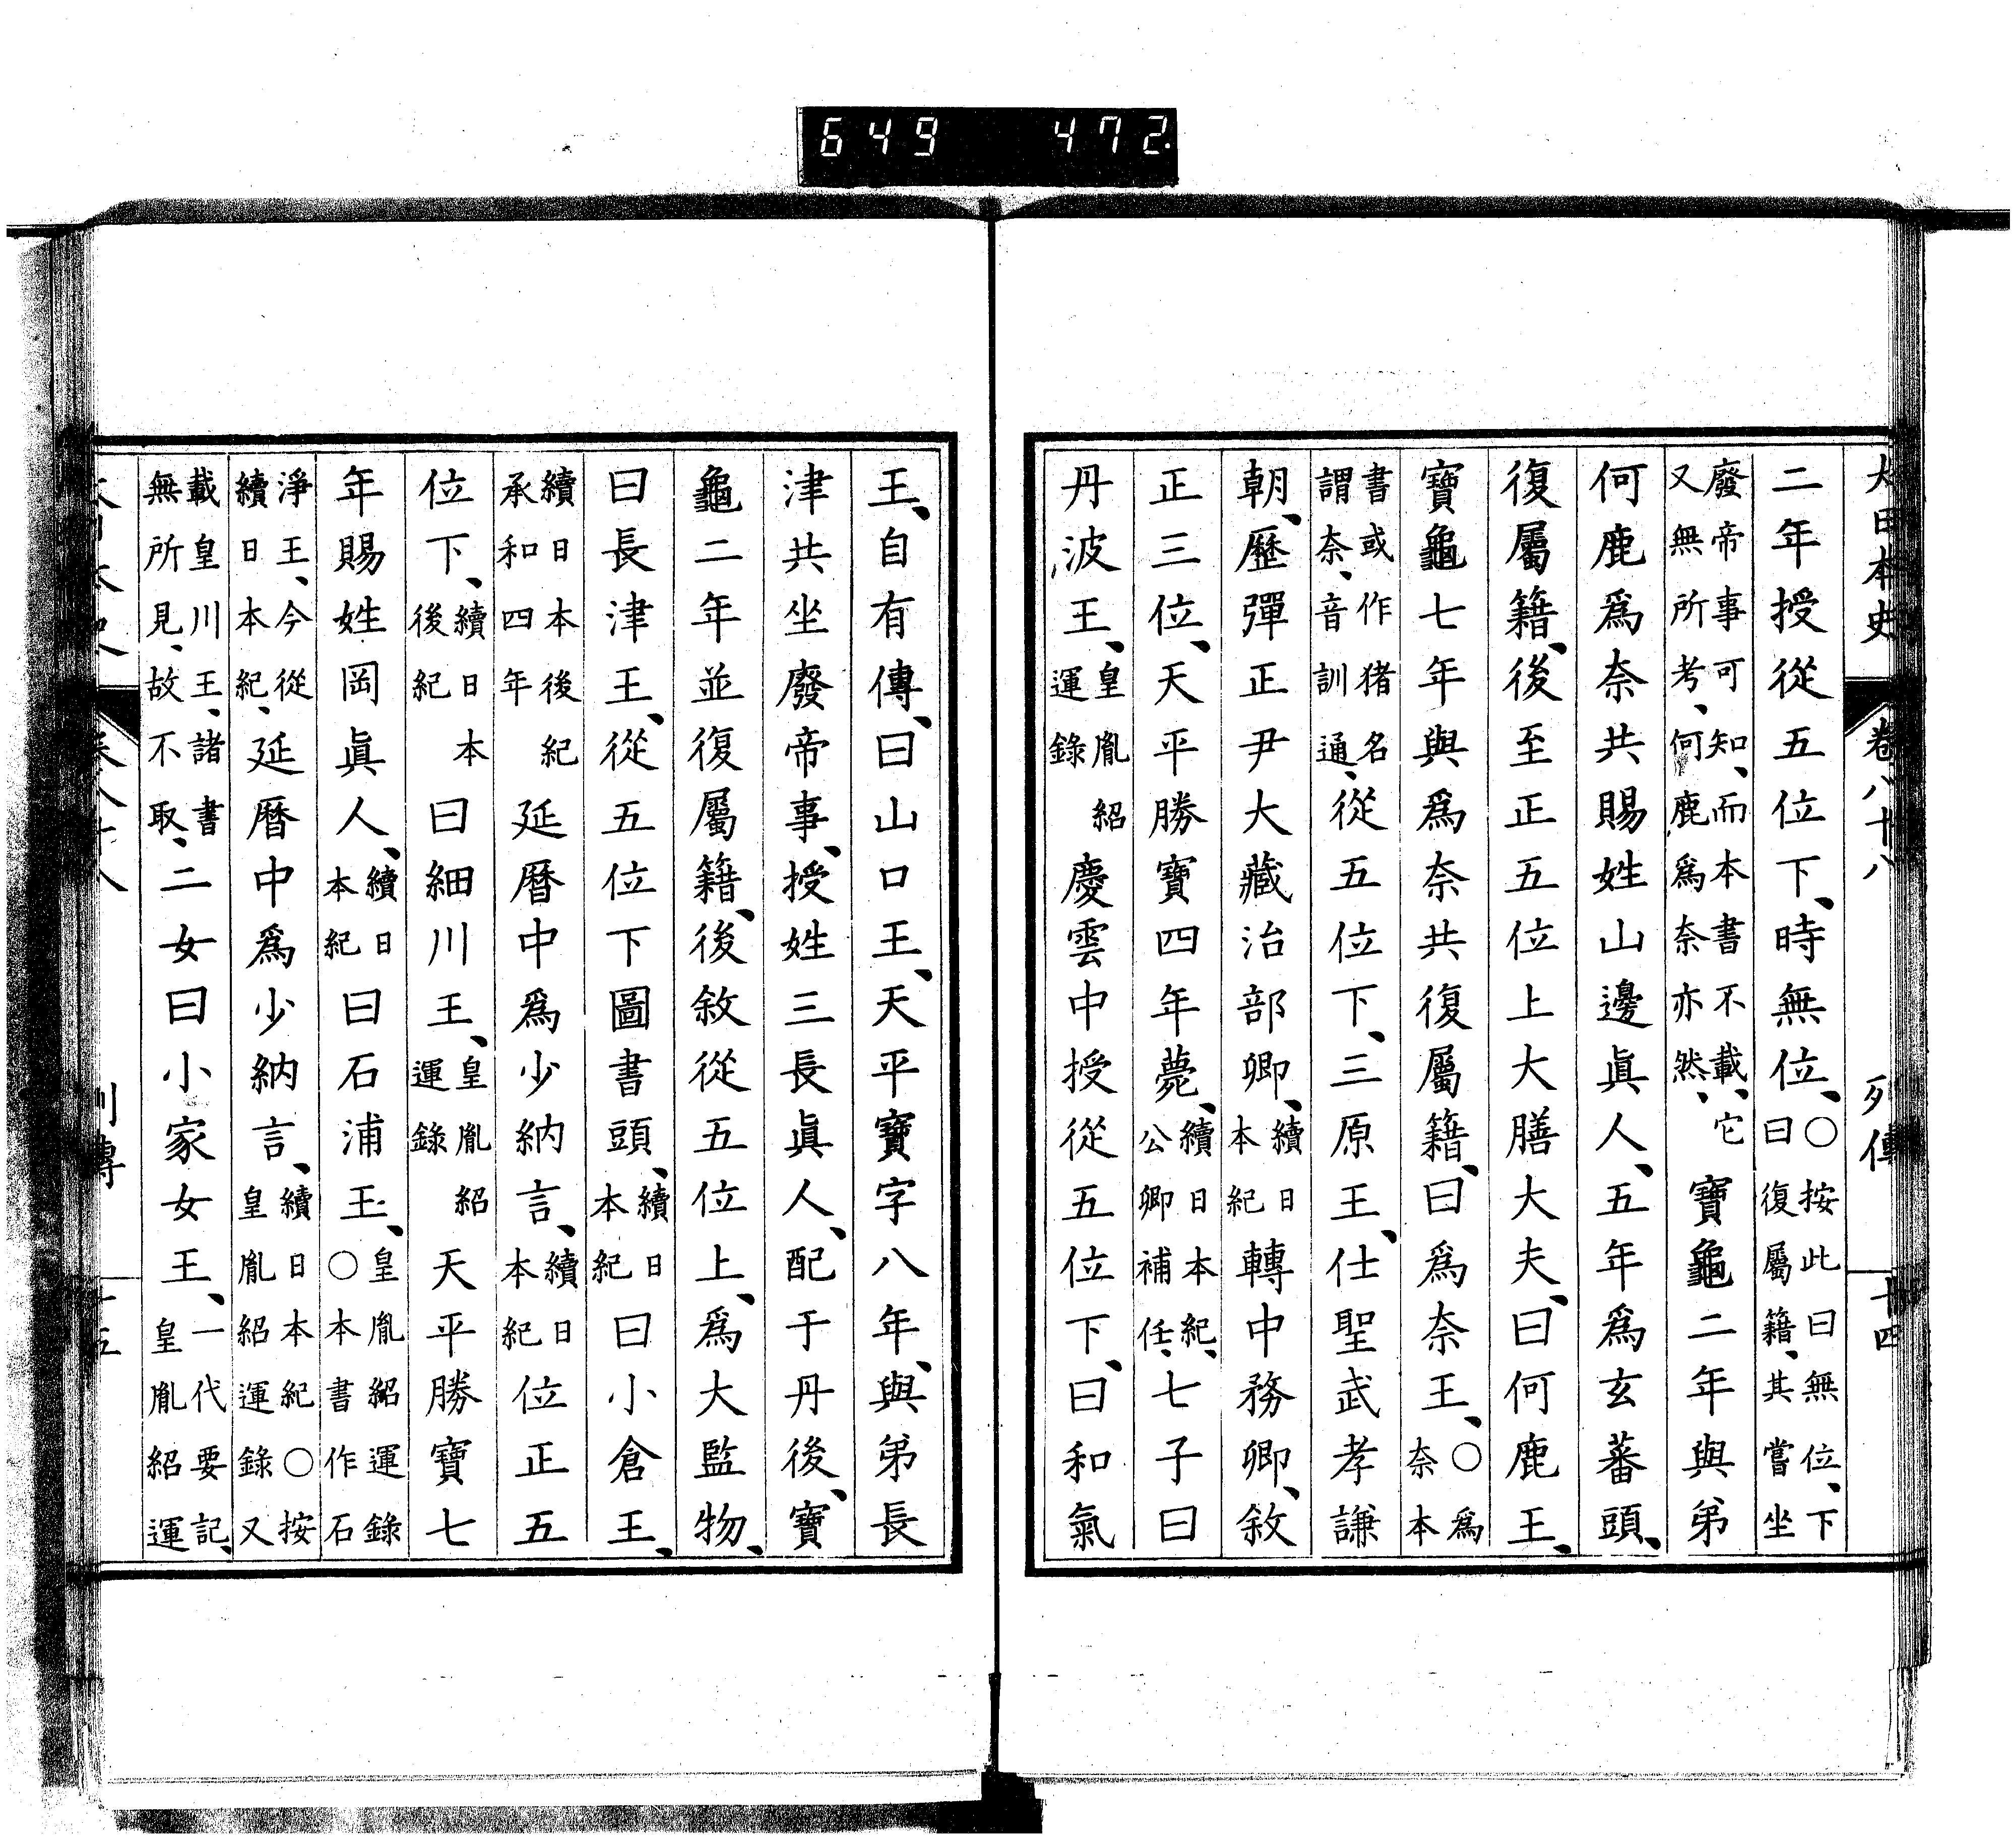 649 472
大日本史 卷八十八 列傳 十四
二年授從五位下、時無位、○按此曰無位、下曰復屬籍、其嘗坐
廢帝事可知、而本書不載、它又無所考、何鹿爲奈亦然、寶龜二年與弟
何鹿爲奈共賜姓山邊眞人、五年爲玄蕃頭、
復屬籍、後至正五位上大膳大夫、曰何鹿王、
寶龜七年與爲奈共復屬籍、曰爲奈王、○爲奈本
書或作猪名謂奈、音訓通、從五位下、三原王、仕聖武孝謙
朝、歷彈正尹大藏治部卿、續日本紀轉中務卿、敘
正三位、天平勝寶四年薨、續日本紀、公卿補任、七子曰
丹波王、皇胤紹運錄慶雲中授從五位下、曰和氣
王、自有傳、曰山口王、天平寶字八年、與弟長
津共坐廢帝事、授姓三長眞人、配于丹後、寶
龜二年並復屬籍、後敘從五位上、爲大監物、
曰長津王、從五位下圖書頭、續日本紀曰小倉王、
續日本後紀承和四年延曆中爲少納言、續日本紀位正五
位下、續日本後紀曰細川王、皇胤紹運錄天平勝寶七
年賜姓岡眞人、續日本紀曰石浦王、皇胤紹運錄○本書作石
淨王、今從續日本紀、延曆中爲少納言、續日本紀○按皇胤紹運錄又
載皇川王、諸書無所見、故不取、二女曰小家女王、一代要記、皇胤紹運
列傳